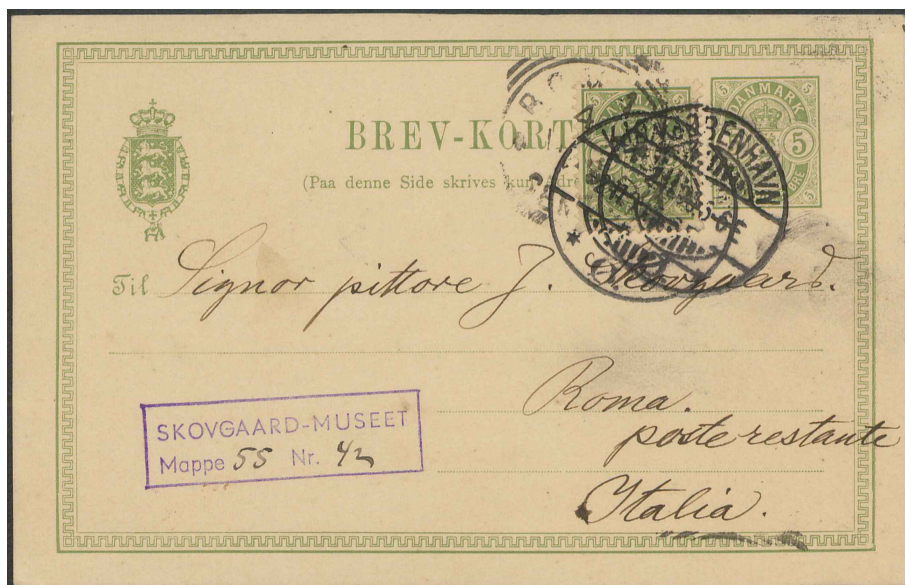 BREV-KORT
(Paa denne Side skrives kun
DANMARK
5
ØRE
KJØBENHAVN
Til Signor pittore J. Skovgaard.
Roma.
poste restante
Italia.
SKOVGAARD-MUSEET
Mappe 55 Nr. 42